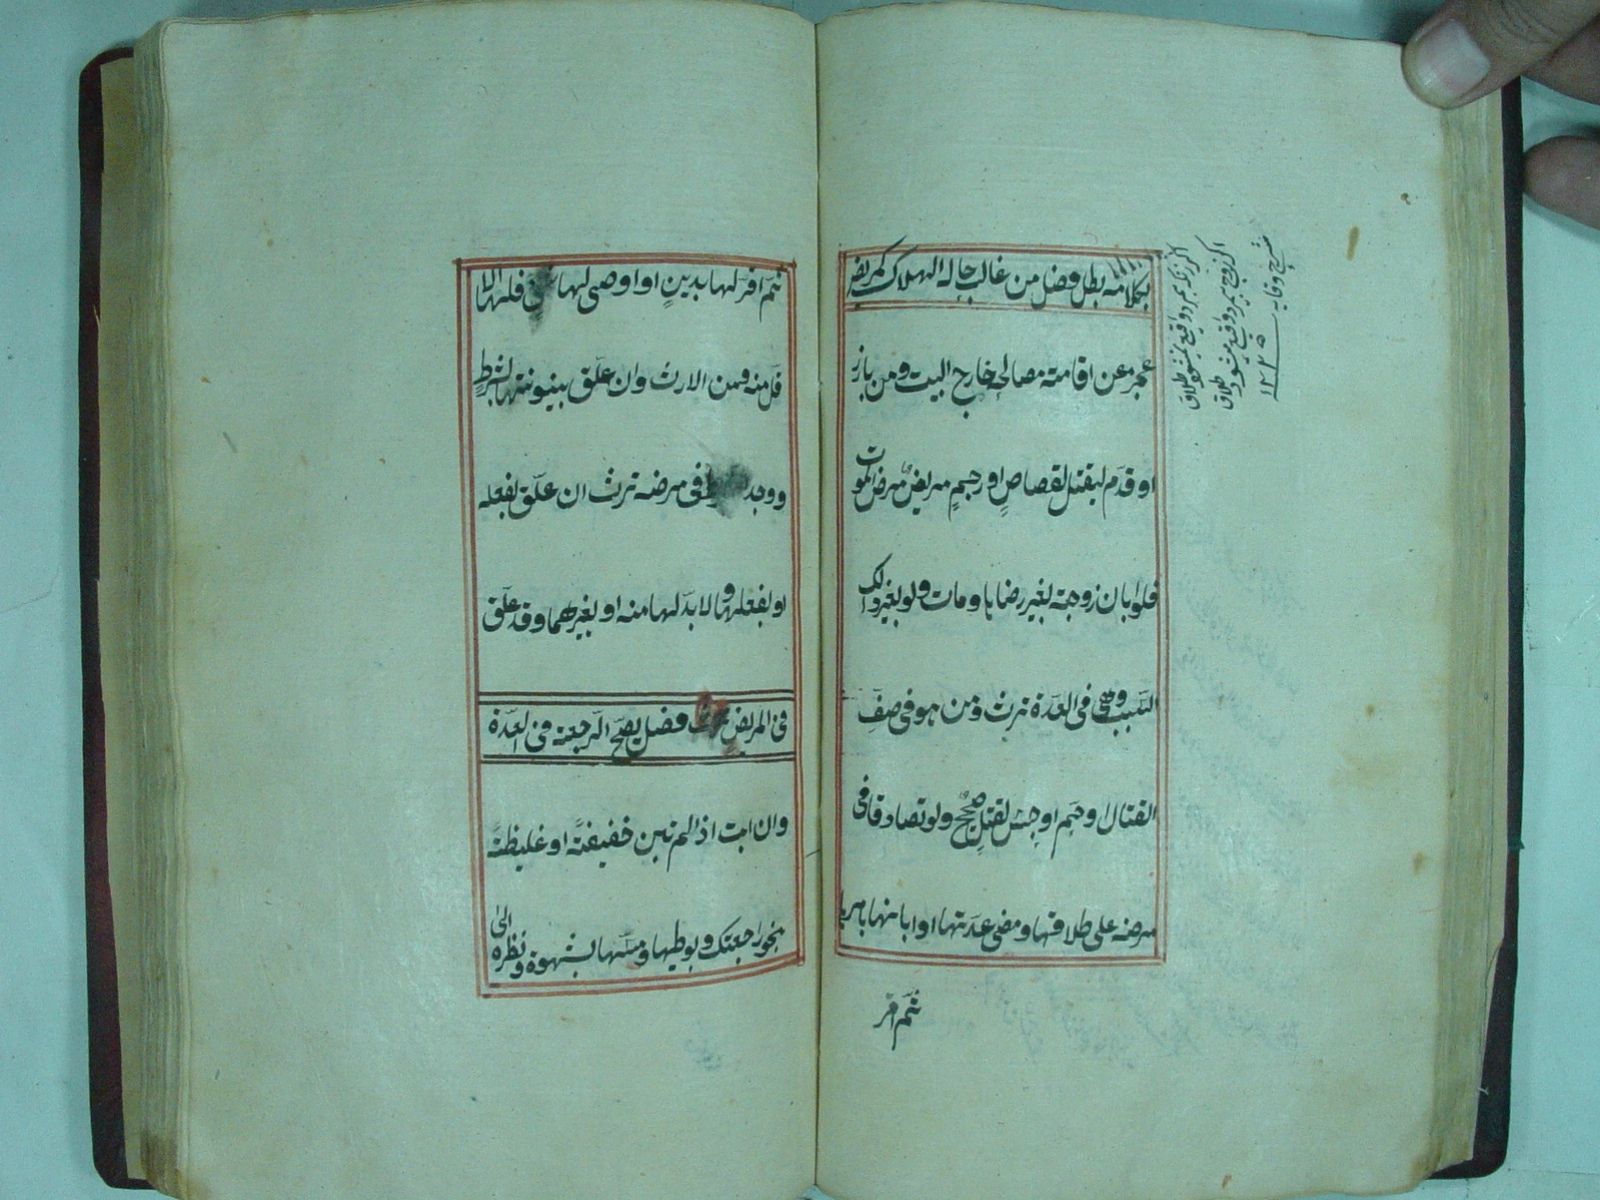 بكلامه بطل فصل من غالب حاله الهلاك كمريض
عجز عن اقامته مصالحه خارج البيت ومن بارز
او قدم ليقتل لقصاص او رجم مريض مرض الموت
فلو ابان زوجته بغير رضاها ومات ولو بغير ذلك
السبب وهى فى العدة ترث ومن هو فى صف
القتال او حم او حبس لقتل صحيح ولو تصادقا فى
مرضه على طلاقها ومضى عدتها او ابانها بامرها
ثم اقر
شرح وقايه
ثم اقر لها بدين او اوصى لها فلها الا
قل منه ومن الارث وان علق بينونتها بشرط
ووجد فى مرضه ترث ان علق بفعله
او بفعلها ولا بد لها منه او بغيرهما وقد علق
فى المرض فصل يصح الرجعة فى العدة
وان ابت اذا لم تبن خفيفة او غليظة
بنحو راجعتك وبوطيها ومسها بشهوة ونظره الى